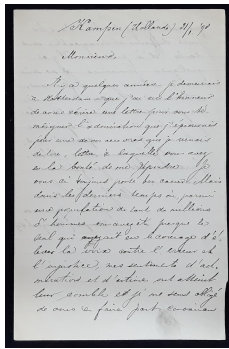 Kampen (Hollande) 21/1 98
Monsieur,
Il y a quelques années, je demeurais
à Rotterdam que j'ai eu l'honneur
de vous écrire une lettre pour vous
l'admiration que j'éprouvais
pour une de vos œuvres que je venais
de lire, lettre à laquelle vous avez
eu la bonté de me répondre. Je
vous ai toujours pour bon
dans les derniers temps où, parmi
une population de tant de millions
d'hommes on voyait presque le
seul qui ayait eu le courage d'é-
lever la voix contre l'erreur et
l'injustice, mes sentiments d'ad-
miration et d'estime ont atteint
leur comble et je me sens obligé
de vous faire part